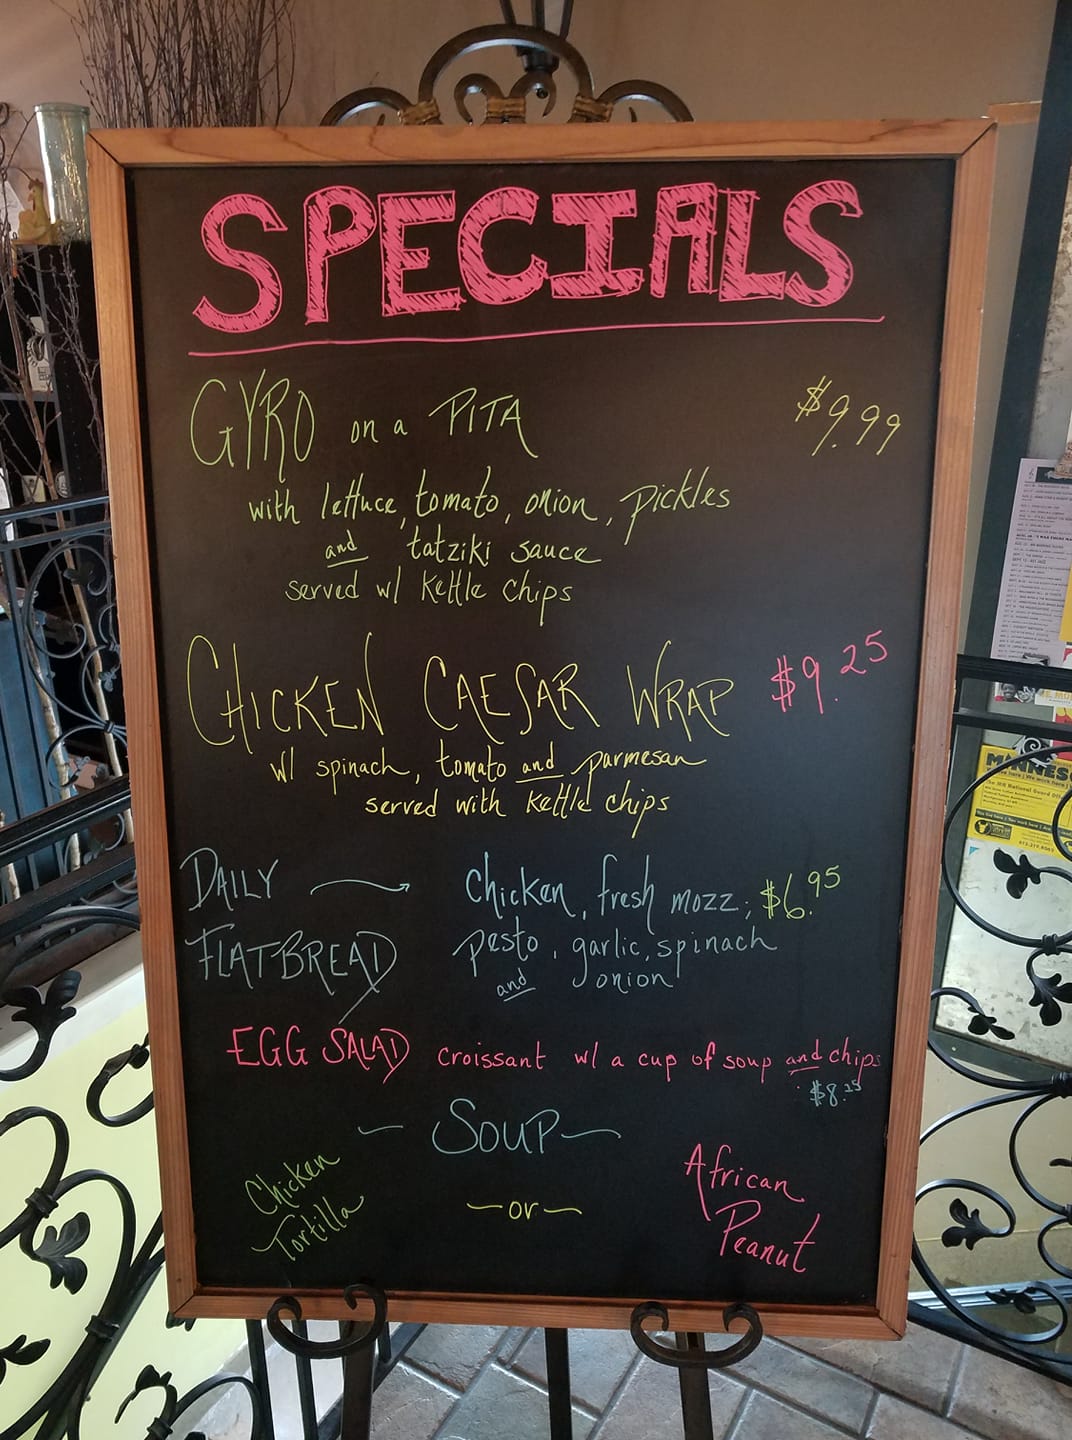 SPECIALS
GYRO on a PITA $9.99
with lettuce, tomato, onion, pickles
and tatziki sauce
served w/ kettle chips
CHICKEN CAESAR WRAP $9.25
w/ spinach, tomato and parmesan
served with kettle chips
DAILY chicken, fresh mozz; $6.95
FLATBREAD pesto, garlic, spinach
and onion
EGG SALAD croissant w/ a cup of soup and chips
$8.25
- SOUP -
Chicken
Tortilla
- or -
African
Peanut
MINNES